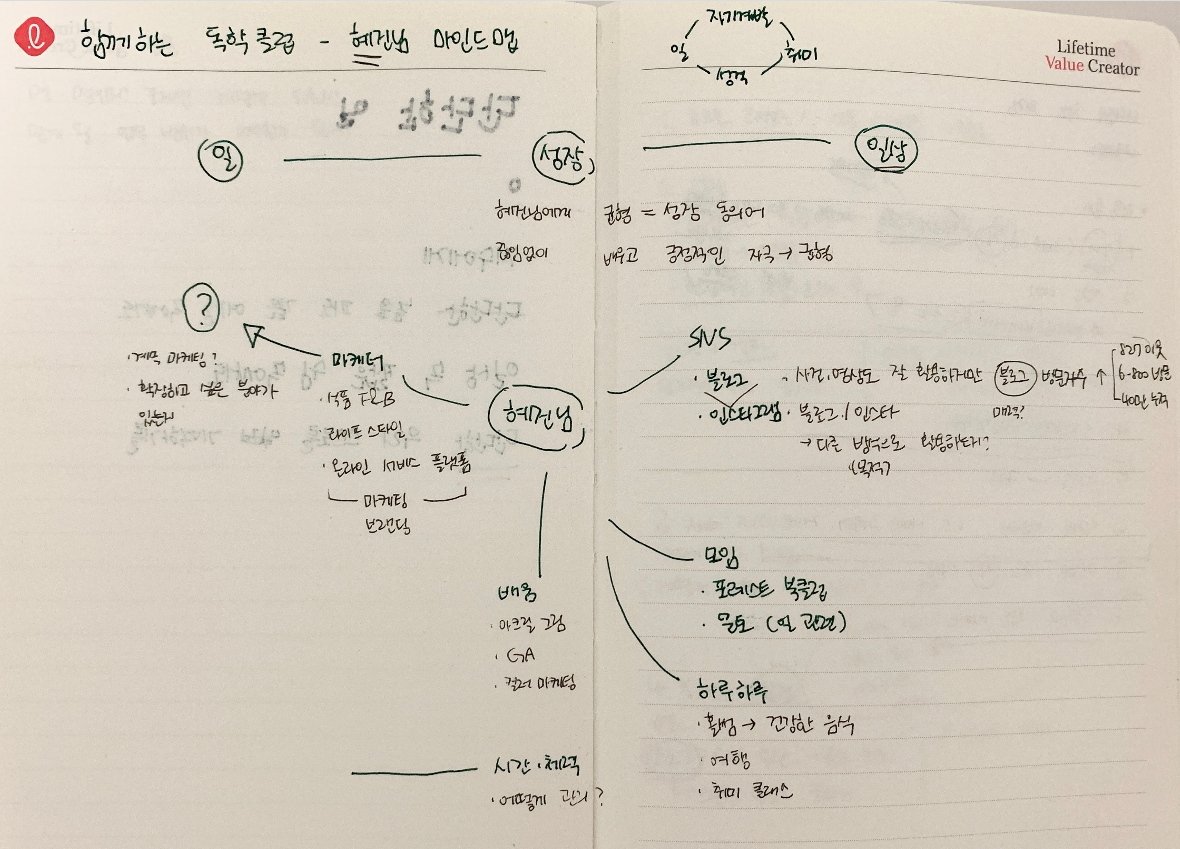 함께하는 독학클럽 - 혜건님 마인드맵
자기계발
일 취미
성격
Lifetime
Value Creator
일 성장 일상
혜건님에게 균형 = 성장 동의어
끊임없이 배우고 긍정적인 자극 → 균형
?
· 계속 마케팅?
· 확장하고 싶은 분야가
있는지
마케터
· 식품 F&B
· 라이프 스타일
· 온라인 서비스 플랫폼
마케팅
브랜딩
혜건님
SNS
· 블로그
· 인스타그램
· 사진·영상도 잘 활용하지만 블로그 방문자수 ↑
827 이웃
6-800 방문
40만 누적
매력?
· 블로그/인스타
→ 다른 방식으로 활용하는지?
목적?
모임
· 포레스트 북클럽
· 문토 (일 관련)
배움
· 아크릴 그림
· GA
· 컬러 마케팅
하루하루
· 홈쿡 → 건강한 음식
· 여행
· 취미 클래스
시간·체력
· 어떻게 관리?